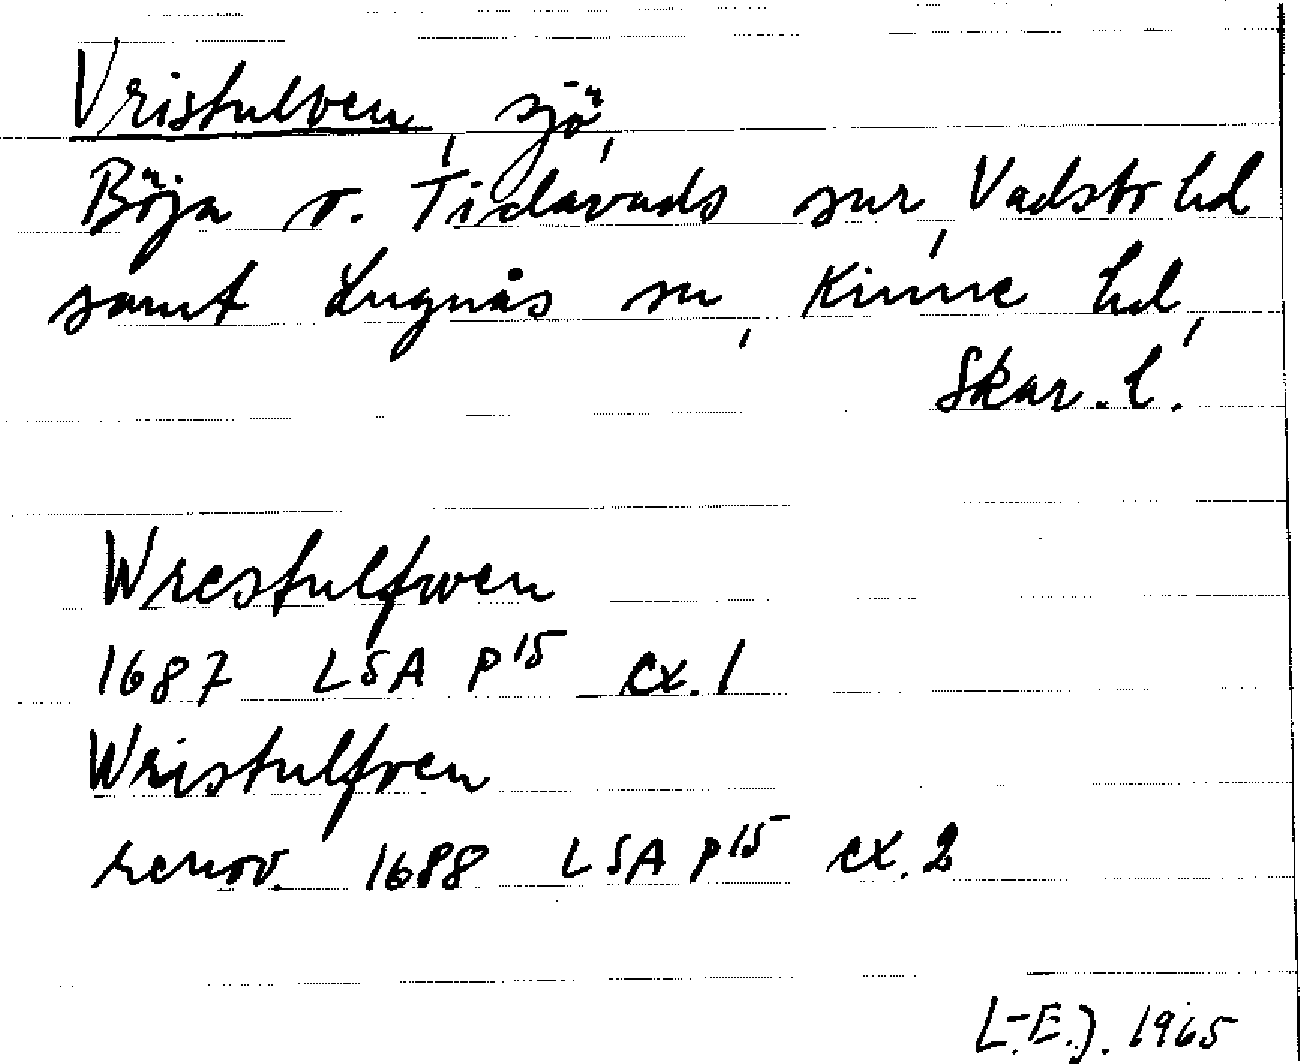 Vristulven, sjö,
Böja o. Tidavads snr, Vadsbo hd
samt Lugnås sn, Kinne hd,
Skar. l.
Wrestulfwen
1687 LSA P15 ex. 1
Wristulfven
renov. 1688 LSA P15 ex. 2
L.-E. J. 1965